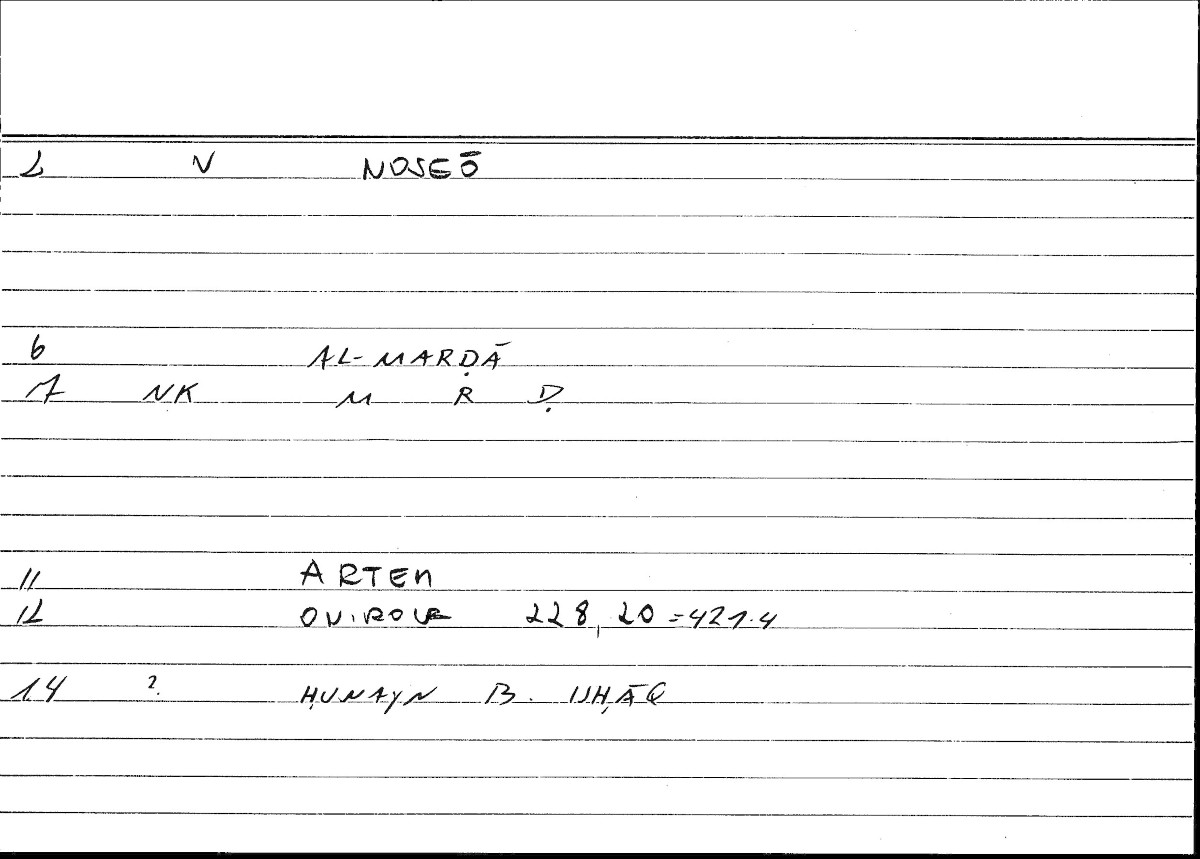 2 N NOSEŌ
6 AL-MARḌĀ
7 NK M R Ḍ
11 ARTEM
12 ONIROCR 228,20=421.4
14 2. ḤUNAYN B. ISḤĀQ